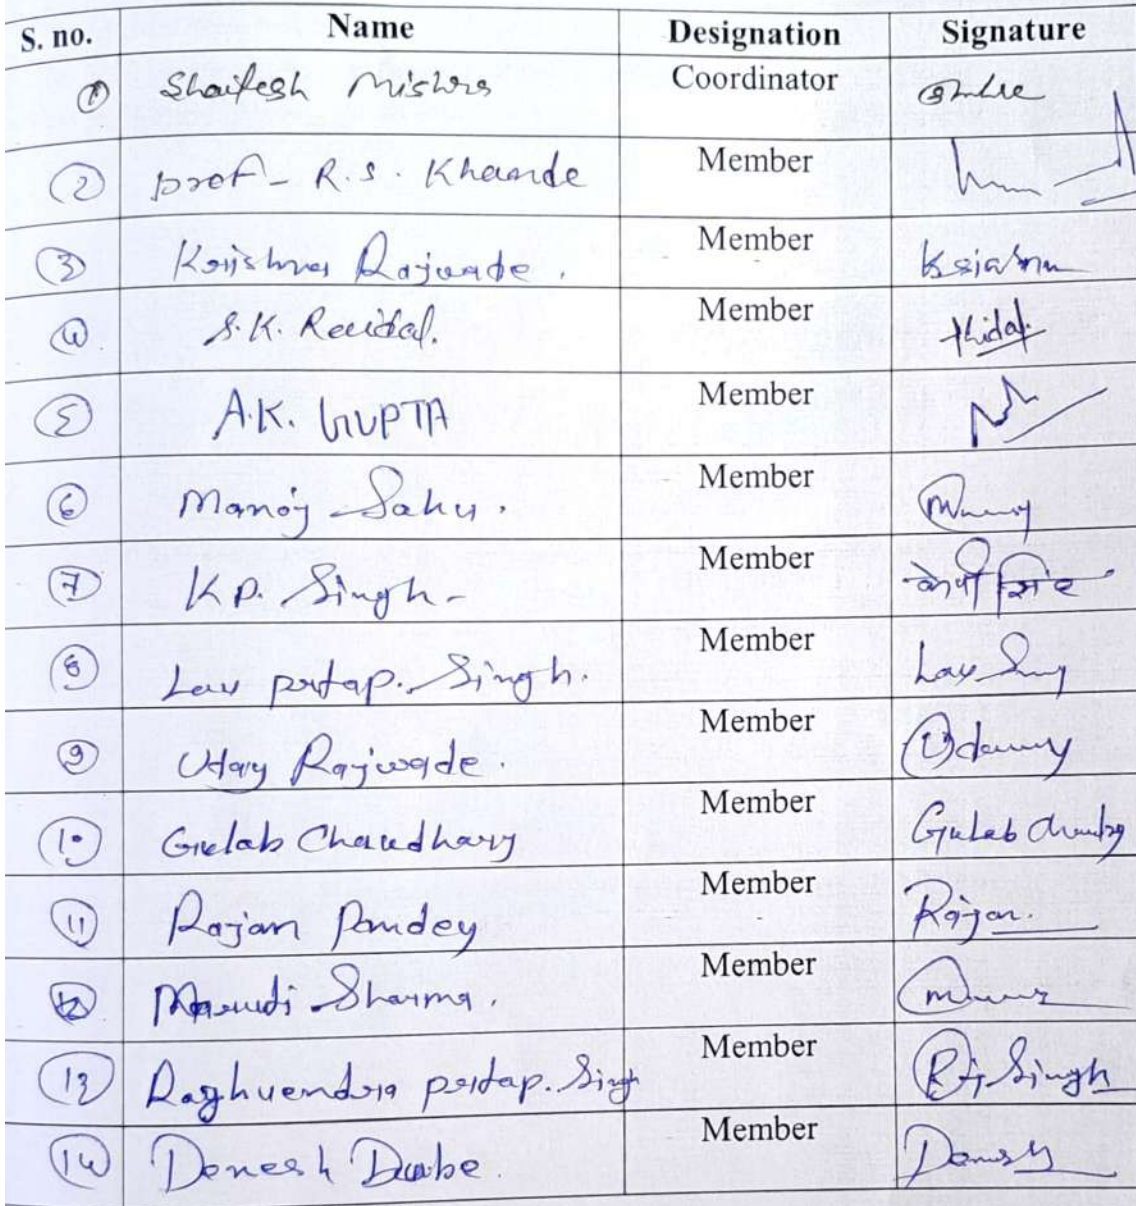 S. no. Name Designation Signature
1 Shailesh Mishra Coordinator
2 prof - R.S. Khande Member
3 Krishna Rajwade. Member Krishna
4 S.K. Member
5 A.K. GUPTA Member
6 Manoj Sahu. Member
7 K.P. Singh - Member
8 Lav pratap. Singh. Member Lav
9 Uday Rajwade. Member
10 Gulab Chaudhary Member Gulab
11 Rajan Pandey Member Rajan
12 Sharma. Member
13 Raghuendra pratap. Singh Member Singh
14 Denesh Dube. Member Denesh